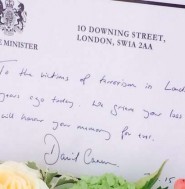 10 DOWNING STREET,
LONDON, SW1A 2AA
E MINISTER
To the victims of terrorism in Lond
years ago today. We grieve your loss
will honour your memory for ever.
David Camer
15